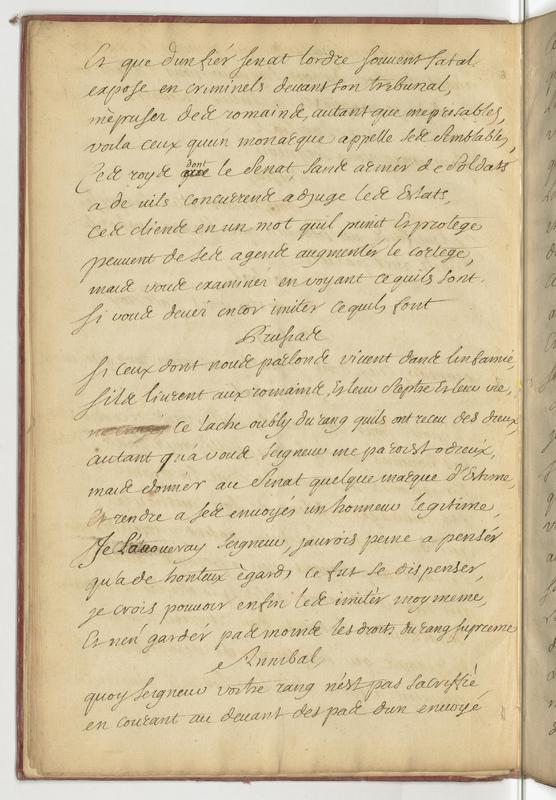 Et que d'un fiér senat lordre souvent fatal
expose en criminels devant son tribunal,
mépriser ded romaind, autant que meprisables,
voila ceux qu'un monarque appelle sed semblables,
Ced royd dont le Senat, sand armér de soldats
a de vils concurrend adjuge led Estats,
ced cliend en un mot quil punit Et protege
peuvent de sed agend augmentér le cortege,
maid voud examinér en voyant cequils sont.
si voud devéz encor imiter cequils font
Prusiad
si ceux dont noud parlond vivent dand linfamie,
sild livrent aux romaind, Et leur sceptre Et leur vie,
ce lache oubly du rang quils ont receu des dieux,
autant qu'a voud seigneur me paroist odieux,
maid donner au Senat quelque marque d'Estime,
Et rendre a sed envoyés un honneur legitime,
Je Lavoueray seigneur, jaurois peine a pensér
qu'a de honteux ègards ce fut se dispenser,
je crois pouvoir enfin led imitér moymeme,
Et n'en gardér pad moind les droits du rang supreme
Annibal,
quoy seigneur vostre rang n'est pas sacriffié
en courant au devant des pad dun envoyé